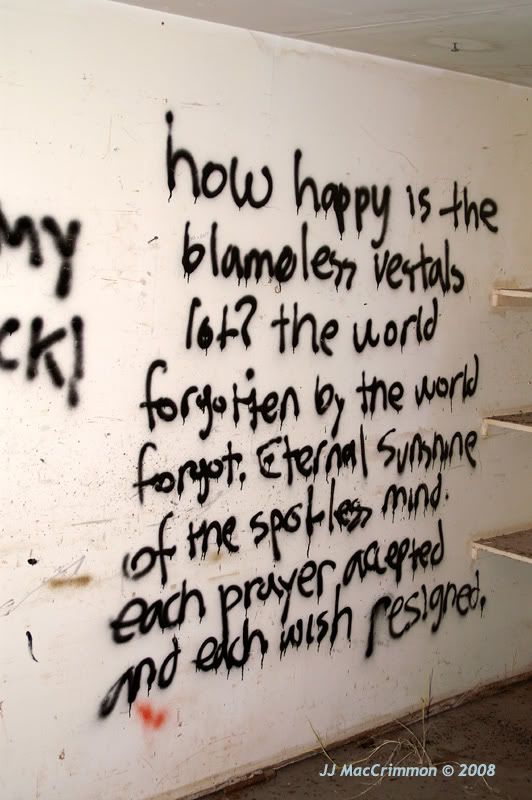 my
ck!
how happy is the
blameless vestals
lot? the world
forgotten by the world
forgot. Eternal Sunshine
of the spotless mind.
each prayer accepted
and each wish resigned.
JJ MacCrimmon © 2008